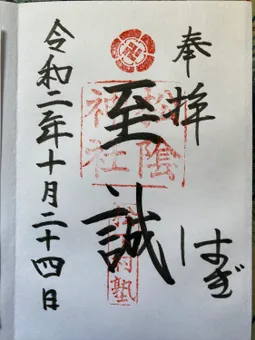 奉拝
はぎ
至誠
松陰神社
松下村塾
令和二年十月二十四日